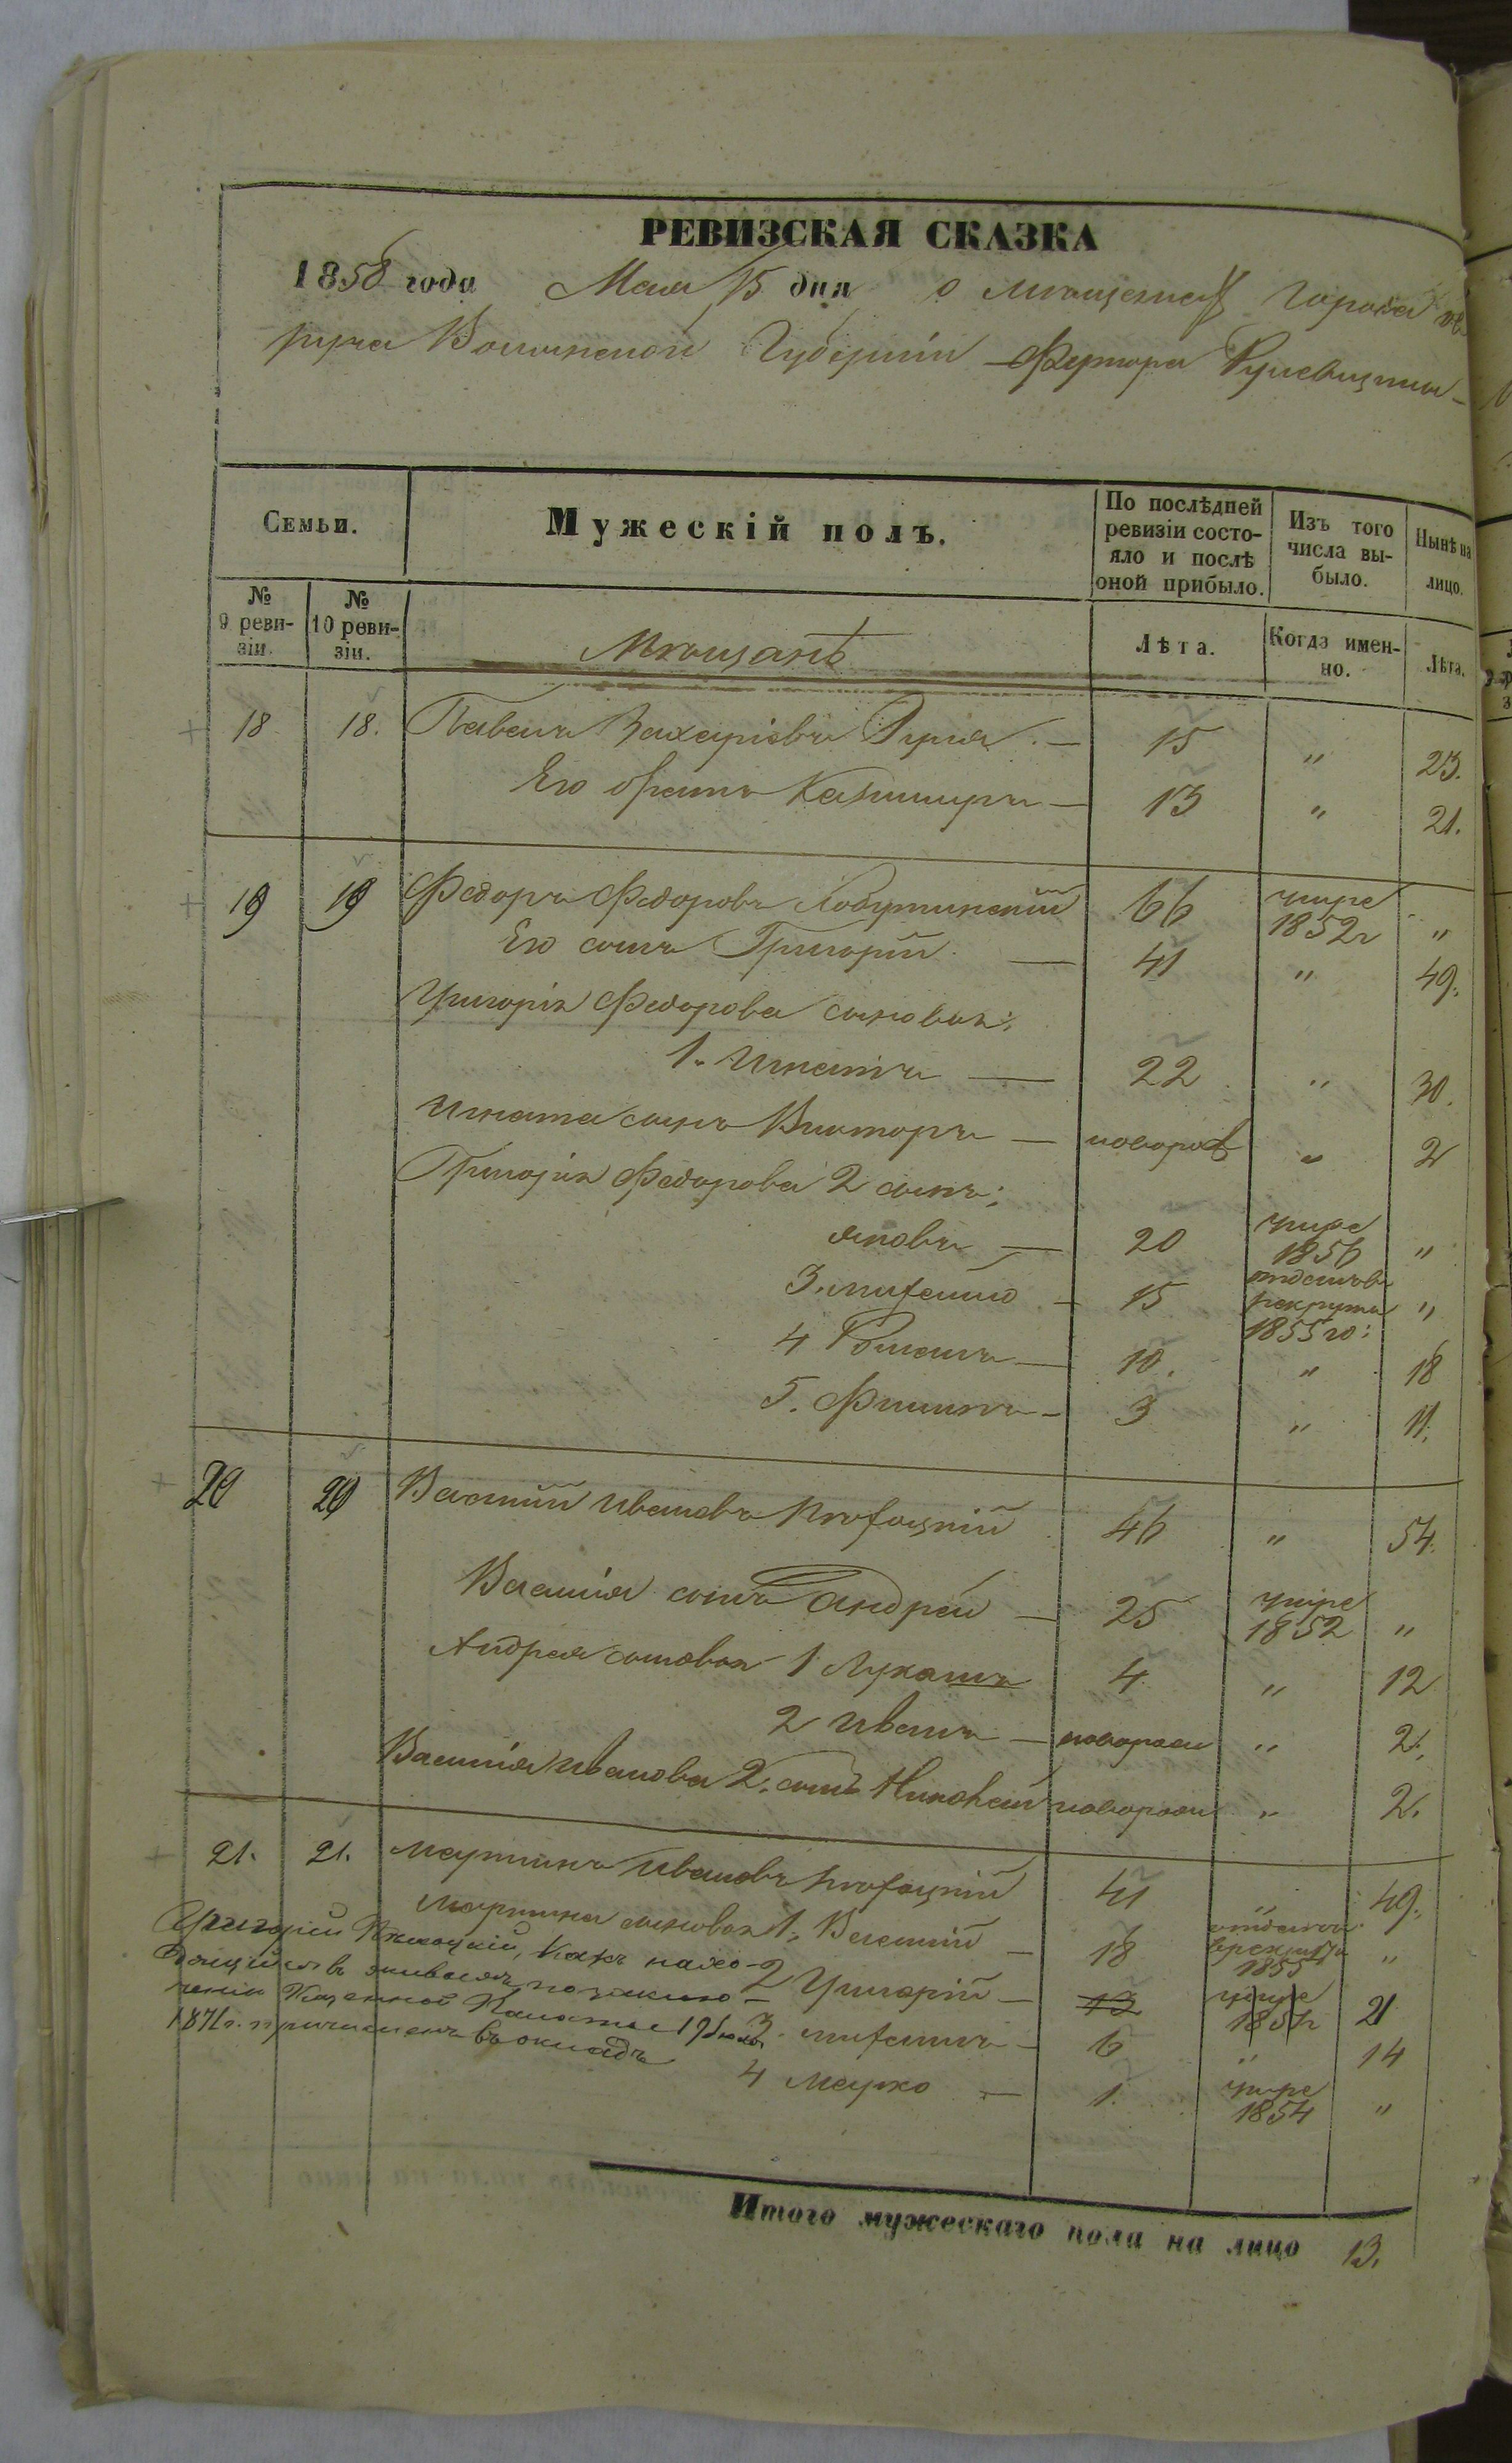 РЕВИЗСКАЯ СКАЗКА
1858 года Мая 15 дня о мещанахъ города Ов
руча Волынской Губерніи Футора
Семьи.
Мужескій полъ.
По послѣдней ревизіи состо-
яло и послѣ
оной прибыло.
Изъ того
числа вы-
было.
Нынѣ на
лицо.
№
9 реви-
зіи.
№
10 реви-
зіи.
Мѣщанѣ
Лѣта.
Когда имен-
но.
Лѣта.
18 18. Павелъ Захаріевъ — 15 " 23.
Его братъ Казимиръ — 13 " 21.
19 19 Федоръ Федоровъ 66 умре 1852г "
Его сынъ Григорій — 41 " 49.
Григорія Федорова сыновья:
1. Игнатъ — 22 " 30.
Игната сынъ Викторъ — новорож " 2
Григорія Федорова 2 сынъ:
Яковъ — 20 умре 1856 "
3. Михайло — 15 отданъ въ рекруты 1855го: "
4 Романъ — 10. " 18
5. Филипъ — 3 " 11.
20 20 Василій Ивановъ 46 " 54.
Василія сынъ Андрей — 25 умре 1852 "
Андрея сыновья 1 Лукашъ 4 " 12
2 Иванъ — новорож " 2.
Василія Иванова 2. сынъ Николай новорож " 2.
21. 21. Мартинъ Ивановъ 41 " 49.
Мартина сыновья 1. Василій — 18 отданъ в рекруты 1855 "
2 Григорій — 13 умре 21
3. Михаилъ — 6 " 14
4 Марко — 1. умре 1854 "
Григорій Какъ нахо-
дящійся въ живыхъ по заклю-
ченіи Казенной Палаты 19 Іюля
1871г. причисленъ въ окладъ
Итого мужескаго пола на лицо 13.